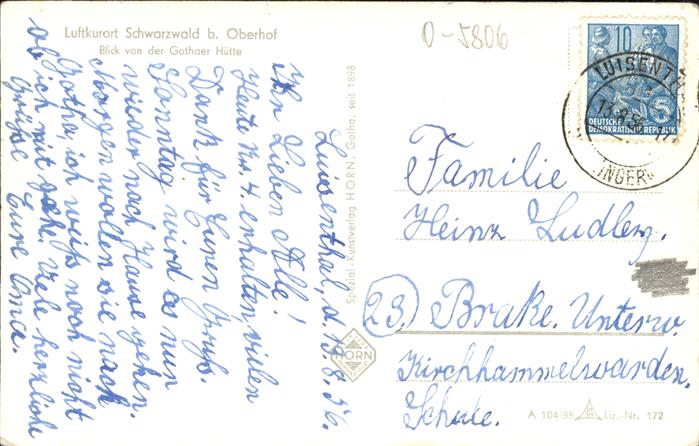 Luftkurort Schwarzwald b. Oberhof
Blick von der Gothaer Hütte
0-5806
10
DEUTSCHE
DEMOKRATISCHE REPUBLIK
LUISENTH
Luisenthal, d. 13.8.56.
Ihr Lieben Alle!
Heute Nr. 4. erhalten vielen
Dank für Euren Gruß.
Sonntag wird es nun
wieder nach Hause gehen.
Morgen wollen sie nach
Gotha, ich weiß noch nicht
ob ich mit geh. Viele herzliche
Grüße Eure Oma.
Spezial-Kunstverlag HORN, Gotha, seit 1898
HORN
Familie
Heinz Ludlez.
23) Brake. Unterw.
Kirchhammelwarden.
Schule.
A 104/55 Liz.-Nr. 172